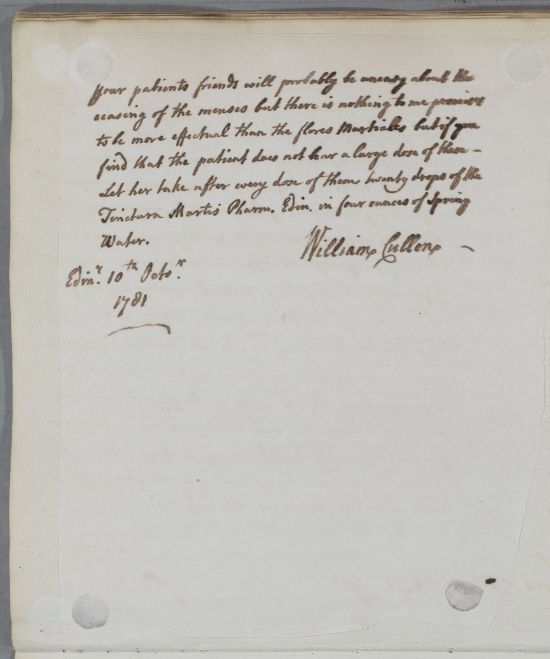 Your patients friends will probably be uneasy about the
ceasing of the menses but there is nothing to me promises
to be more effectual than the flores Martiales but if you
find that the patient does not bear a large dose of these –
Let her take after every dose of them twenty drops of the
Tinctura Martis Pharm. Edin. in four ounces of Spring
Water.
William Cullen
Edinr. 10th Octor.
1781